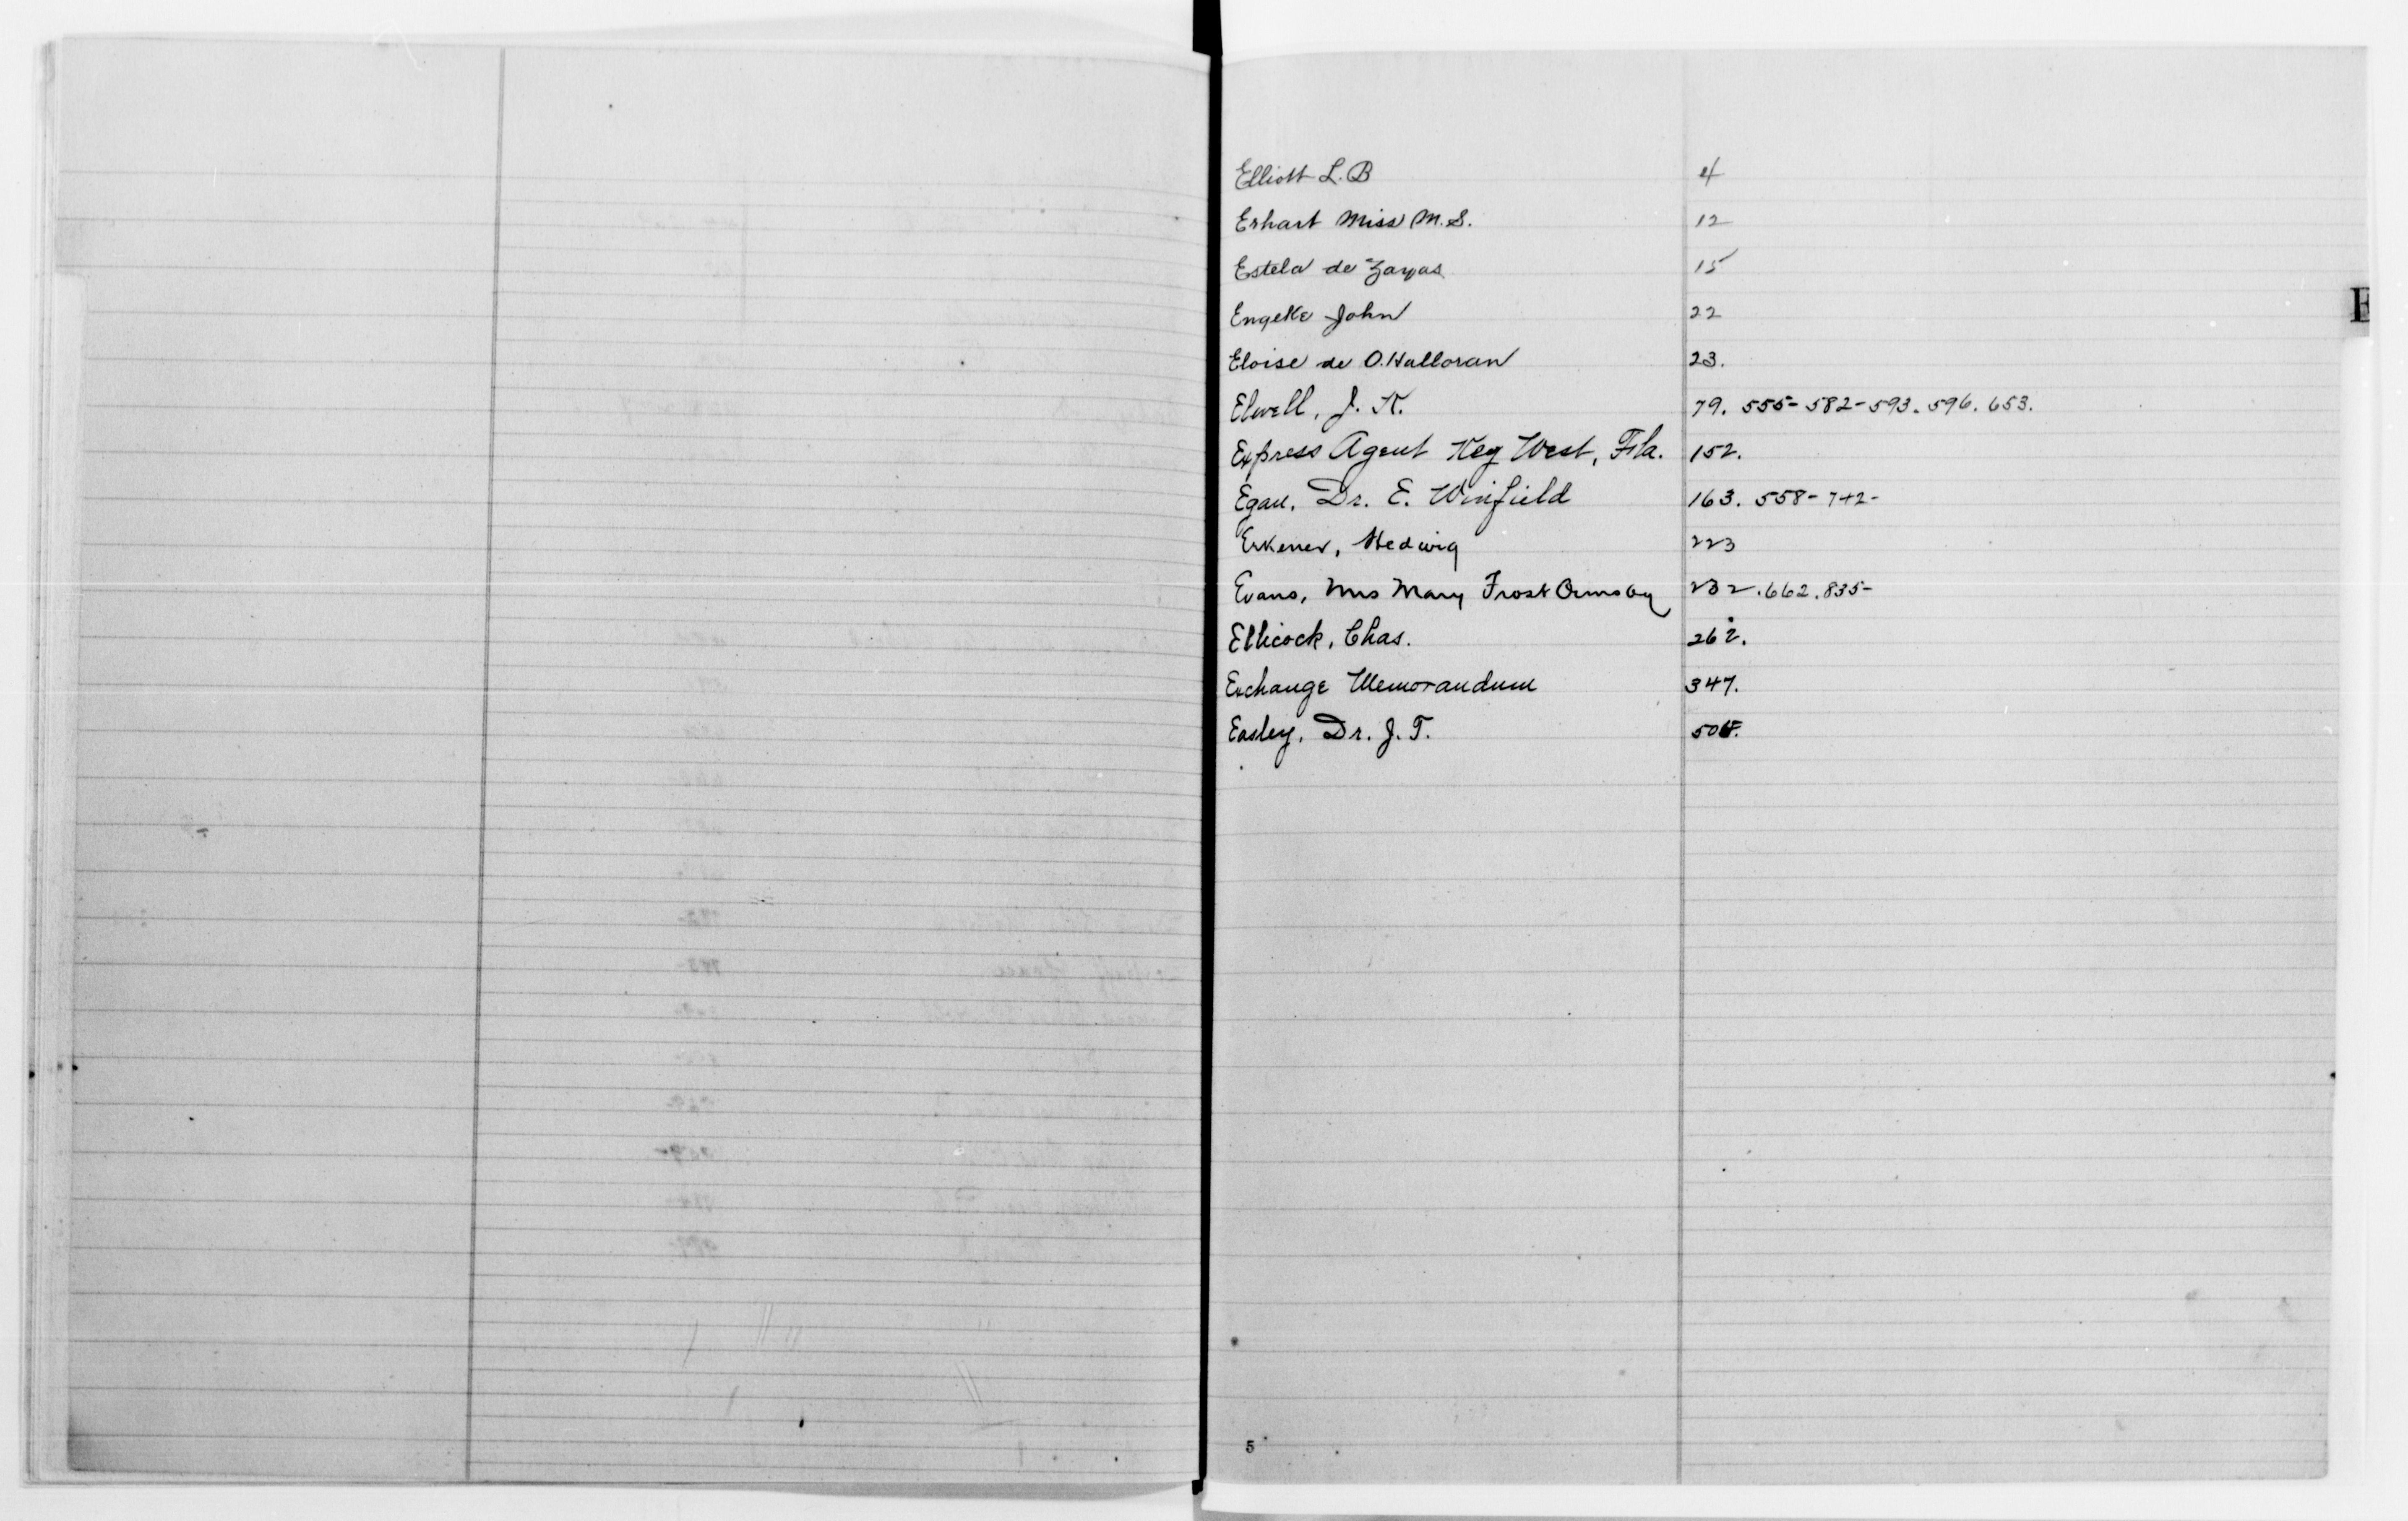 Elliott L. B 4
Erhart Miss M. S. 12
Estela de Zayas 15
E
Engelke John 22
Eloise de O.Halloran 23.
Elwell, J. K. 79. 555- 582- 593. 596. 653.
Express Agent Key West, Fla. 152.
Egan, Dr. E. Winfield 163. 558- 742-
Erkener, Hedwig 223
Evans, Mrs Mary Frost Ormsby 232. 662. 835-
Ellicock, Chas. 262.
Exchange Memorandum 347.
Easley, Dr. J. T.
5